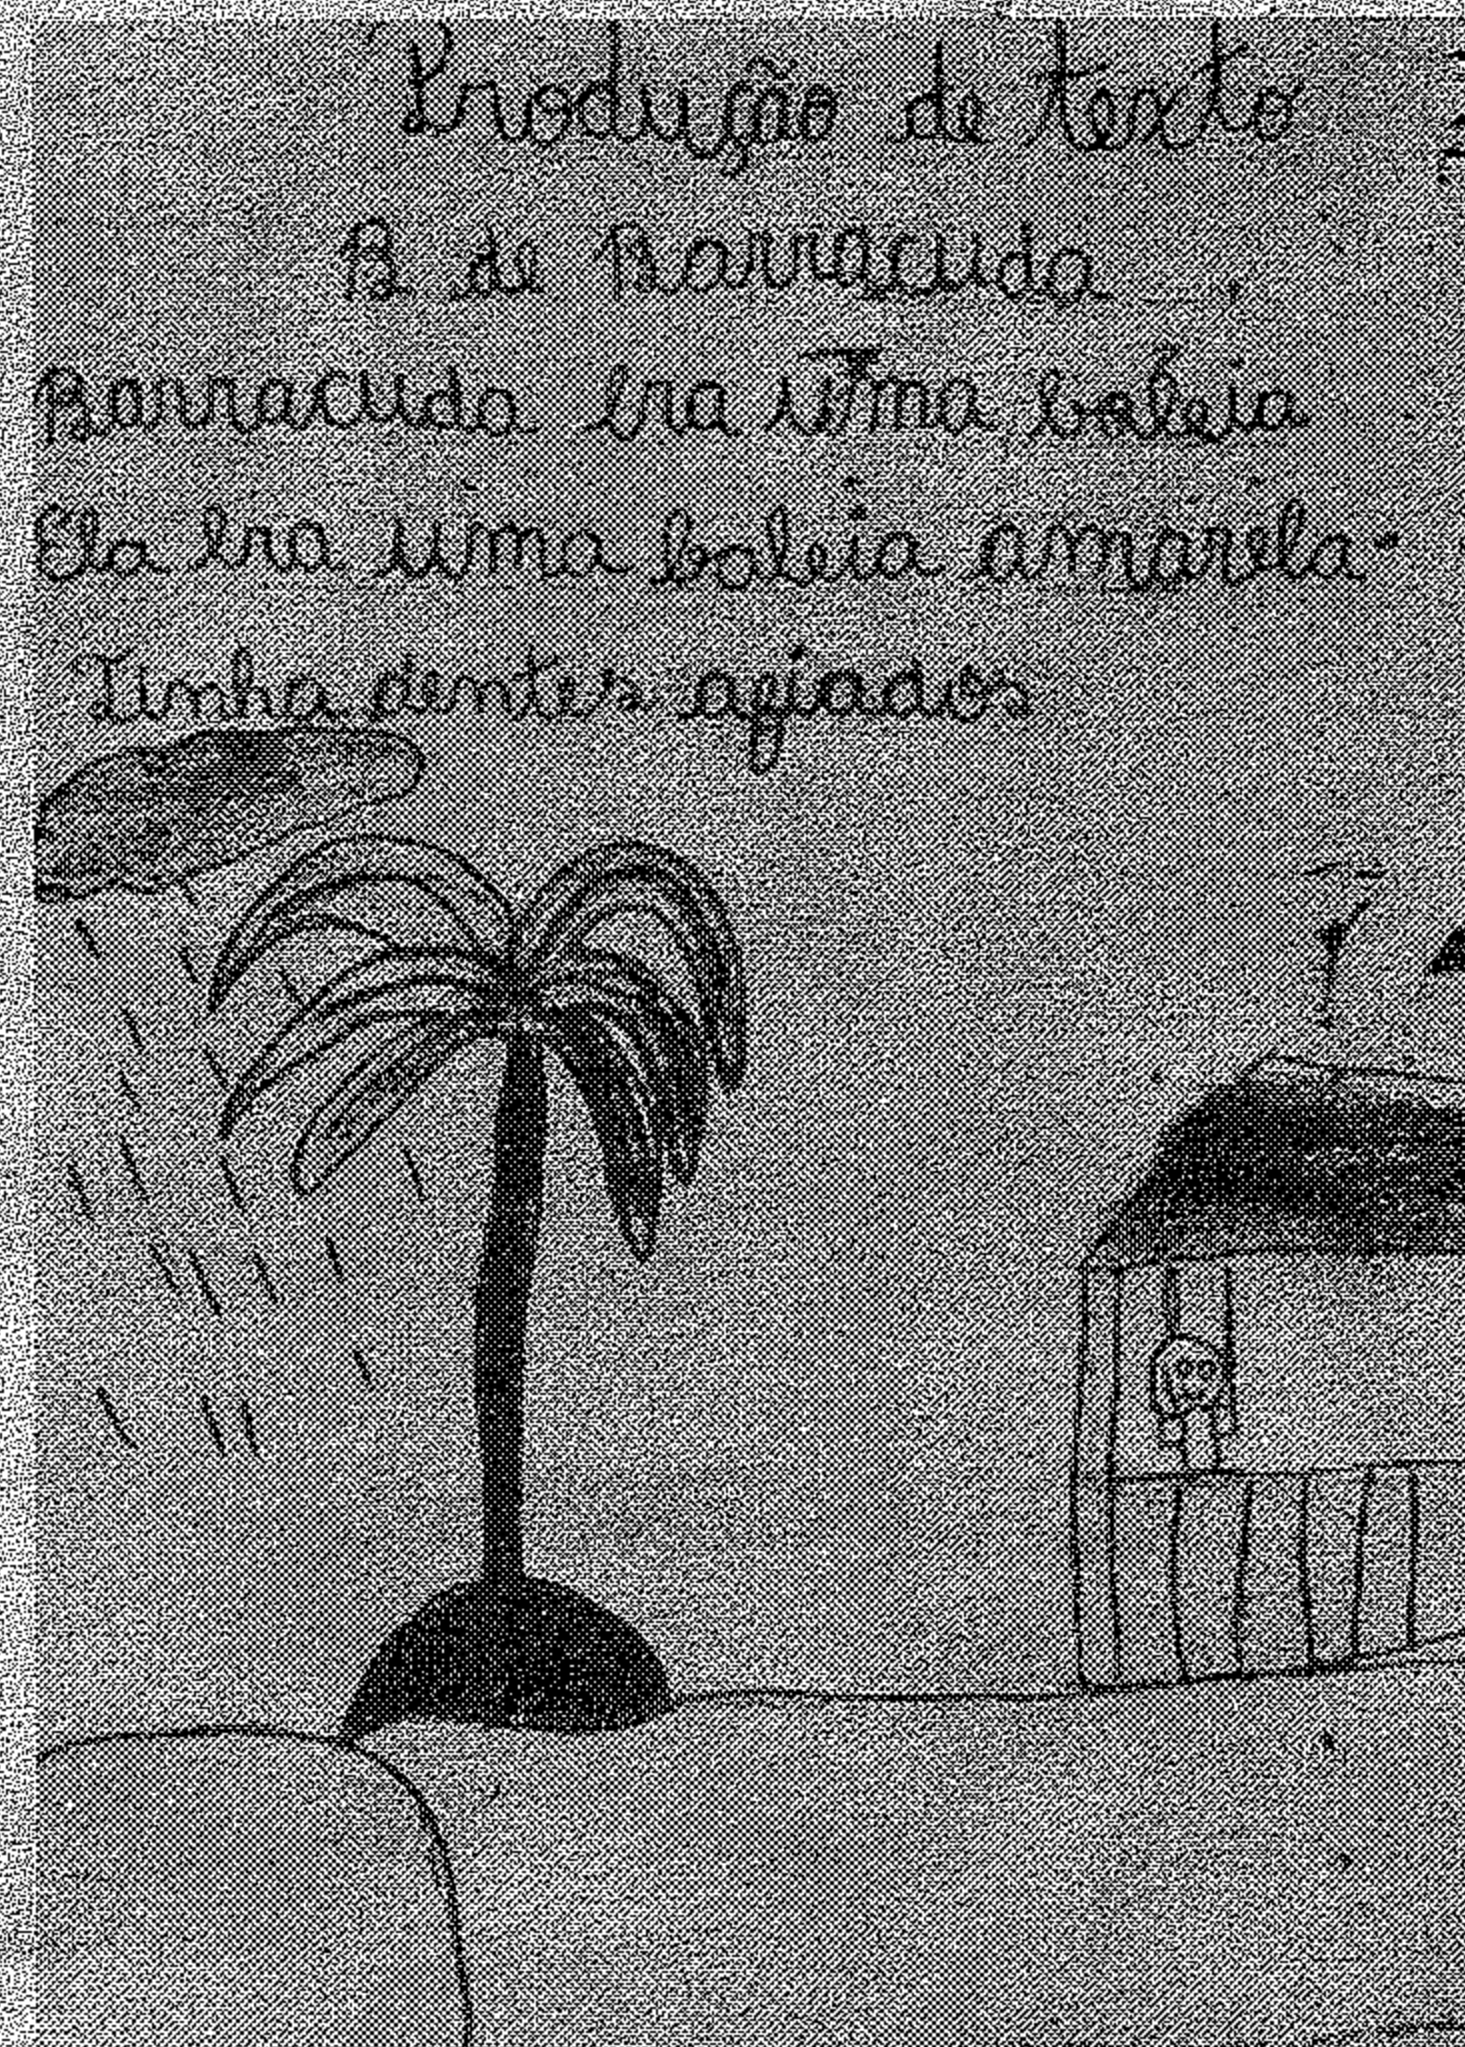 Produção de texto
B de Barracuda
Barracuda era uma baleia
Ela era uma baleia amarela.
Tinha dentes afiados